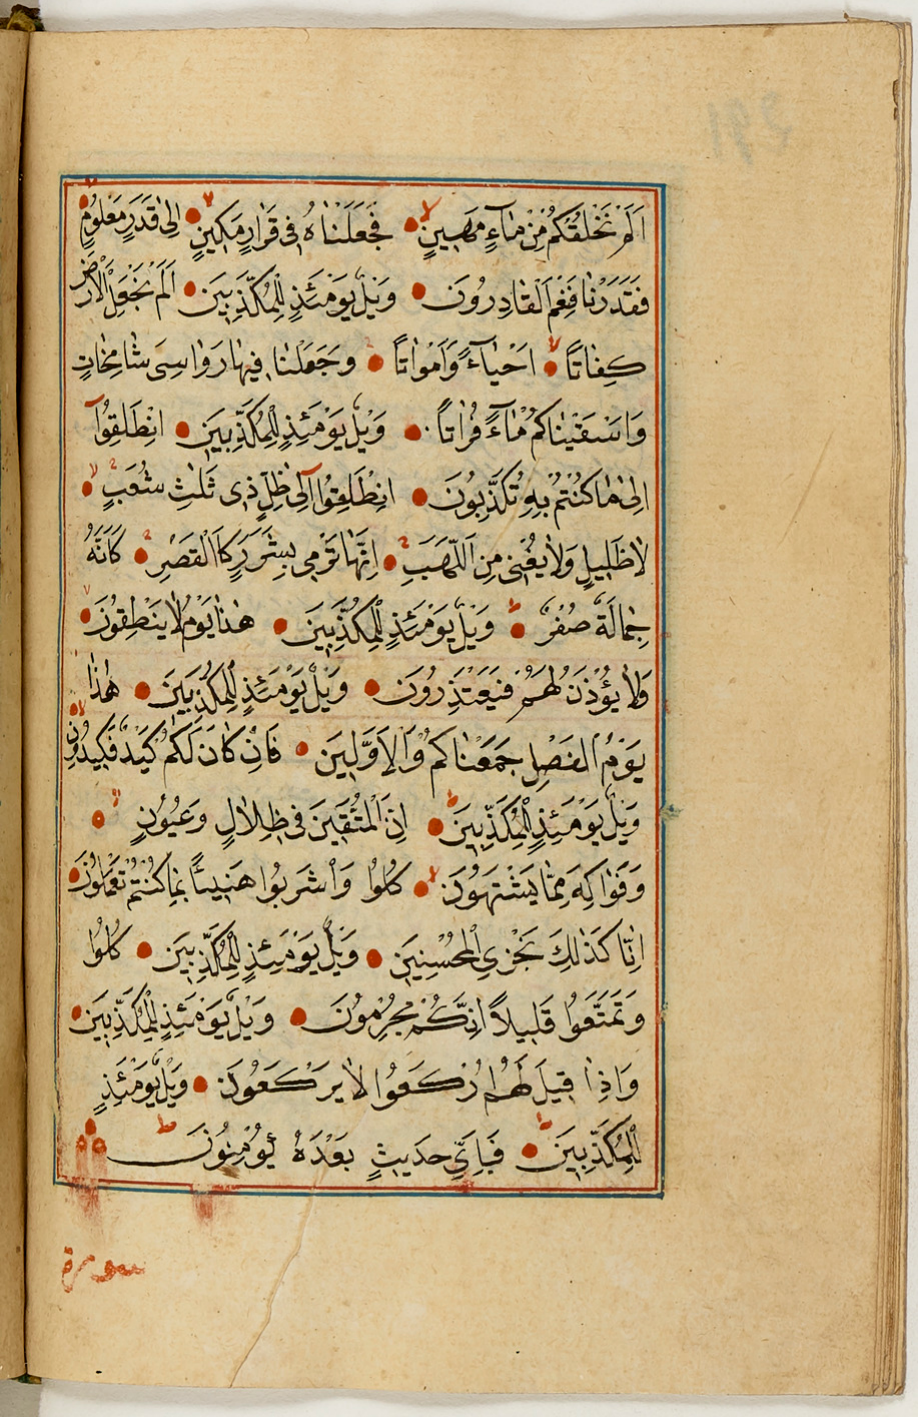 اَلَمْ نَخْلُقْكُمْ مِنْ مٰٓاءٍ مَهٖينٍ فَجَعَلْنَاهُ فٖى قَرَارٍ مَكٖينٍ اِلٰى قَدَرٍ مَعْلُومٍ
فَقَدَرْنَا فَنِعْمَ الْقَادِرُونَ وَيْلٌ يَوْمَئِذٍ لِلْمُكَذِّبٖينَ اَلَمْ نَجْعَلِ الْاَرْضَ
كِفَاتًا اَحْيَآءً وَاَمْوَاتًا وَجَعَلْنَا فٖيهَا رَوَاسِىَ شَامِخَاتٍ
وَاَسْقَيْنَاكُمْ مَٓاءً فُرَاتًا وَيْلٌ يَوْمَئِذٍ لِلْمُكَذِّبٖينَ اِنْطَلِقُٓوا
اِلٰى مَا كُنْتُمْ بِهٖ تُكَذِّبُونَ اِنْطَلِقُٓوا اِلٰى ظِلٍّ ذٖى ثَلٰثِ شُعَبٍ
لَا ظَلٖيلٍ وَلَا يُغْنٖى مِنَ اللَّهَبِ اِنَّهَا تَرْمٖى بِشَرَرٍ كَالْقَصْرِ كَاَنَّهُ
جِمَالَةٌ صُفْرٌ وَيْلٌ يَوْمَئِذٍ لِلْمُكَذِّبٖينَ هٰذَا يَوْمُ لَا يَنْطِقُونَ
وَلَا يُؤْذَنُ لَهُمْ فَيَعْتَذِرُونَ وَيْلٌ يَوْمَئِذٍ لِلْمُكَذِّبٖينَ هٰذَا
يَوْمُ الْفَصْلِ جَمَعْنَاكُمْ وَالْاَوَّلٖينَ فَاِنْ كَانَ لَكُمْ كَيْدٌ فَكٖيدُونِ
وَيْلٌ يَوْمَئِذٍ لِلْمُكَذِّبٖينَ اِنَّ الْمُتَّقٖينَ فٖى ظِلَالٍ وَعُيُونٍ
وَفَوَاكِهَ مِمَّا يَشْتَهُونَ كُلُوا وَاشْرَبُوا هَنٖيئًا بِمَا كُنْتُمْ تَعْمَلُونَ
اِنَّا كَذٰلِكَ نَجْزِى الْمُحْسِنٖينَ وَيْلٌ يَوْمَئِذٍ لِلْمُكَذِّبٖينَ كُلُوا
وَتَمَتَّعُوا قَلٖيلًا اِنَّكُمْ مُجْرِمُونَ وَيْلٌ يَوْمَئِذٍ لِلْمُكَذِّبٖينَ
وَاِذَا قٖيلَ لَهُمُ ارْكَعُوا لَا يَرْكَعُونَ وَيْلٌ يَوْمَئِذٍ
لِلْمُكَذِّبٖينَ فَبِاَىِّ حَدٖيثٍ بَعْدَهُ يُؤْمِنُونَ
سورة